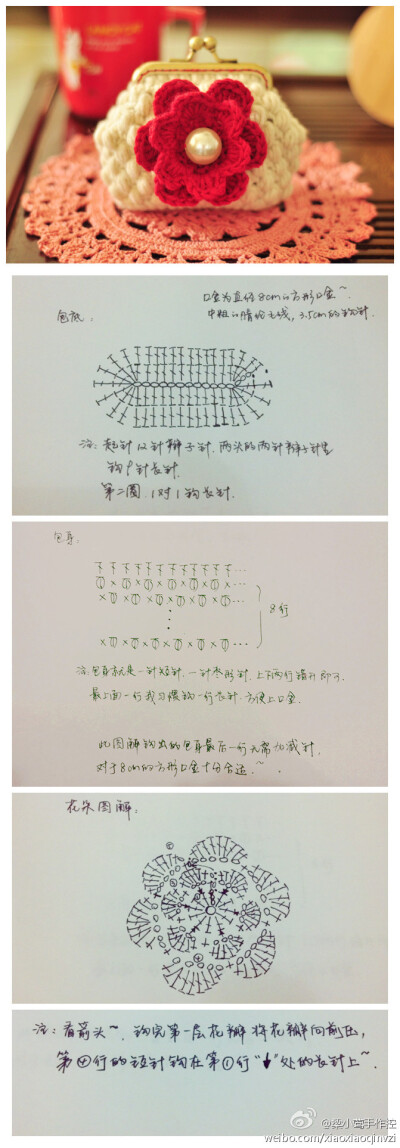 包底.
口金为直径8cm的方形口金~.
中粗的腈纶毛线, 3.5cm的钩针.
注: 起针12针辫子针. 两头的两针辫子针里
钩9针长针.
第二圈. 1对1钩长针.
包身.
8行
注: 包身就是一针短针. 一针枣形针. 上下两行错开即可.
最上面一行我习惯钩一行长针. 方便上口金.
此图解钩出的包身最后一行无需加减针,
对于8cm的方形口金十分合适.~.
花朵图解.
注: 看箭头~. 钩完第一层花瓣将花瓣向前压,
第④行的短针钩在第①行"↓"处的长针上~.
@梁小莺手作控
weibo.com/xiaoxiaoqinvzi